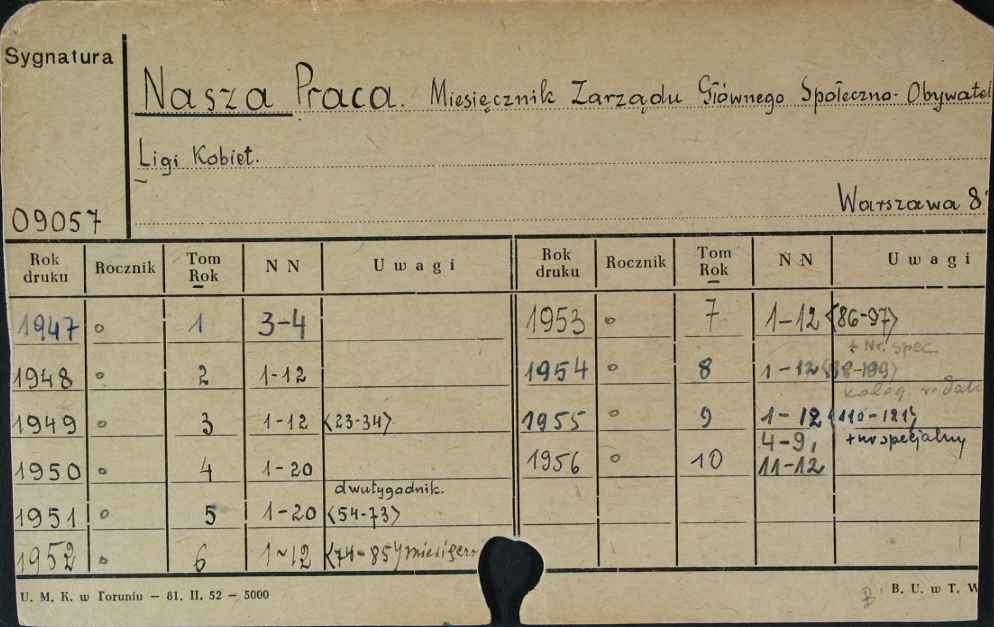 Sygnatura
Nasza Praca. Miesięcznik Zarządu Głównego Społeczno-Obywatel
Ligi Kobiet.
Warszawa 8°
09057
Rok druku Rocznik Tom Rok N N Uwagi Rok druku Rocznik Tom Rok N N Uwagi
1947 o 1 3-4 1953 o 7 1-12 <86-97>
+ Nr. spec.
1948 o 2 1-12 1954 o 8 1-12
1949 o 3 1-12 <23-34> 1955 o 9 1-12 <110-121>
+ nr specjalny
1950 o 4 1-20 1956 o 10 4-9, 11-12
dwutygodnik.
1951 o 5 1-20 <54-73>
1952 o 6 1-12 <74-85>
U. M. K. w Toruniu — 81. II. 52 — 5000
B. U. w T. W